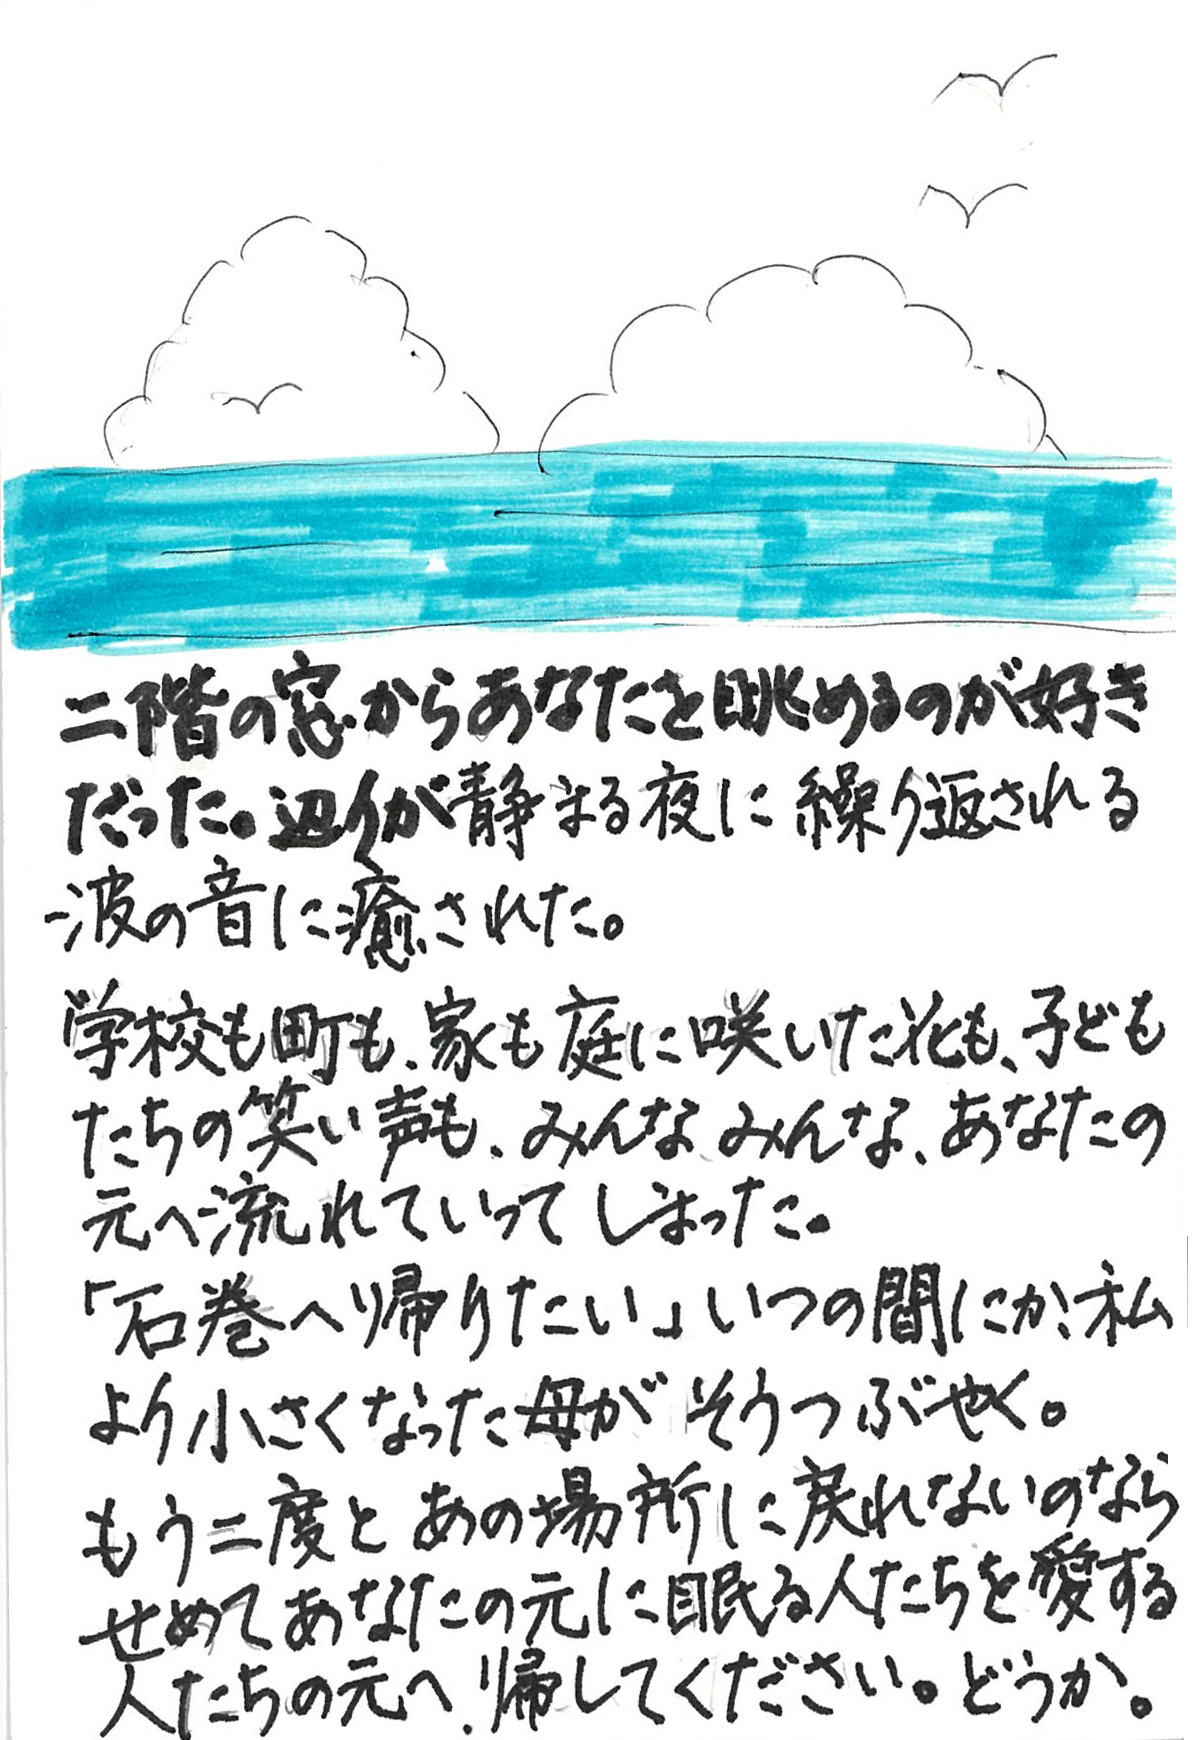 二階の窓からあなたを眺めるのが好き
だった。辺りが静まる夜に繰り返される
波の音に癒された。
学校も町も、家も庭に咲いた花も、子ども
たちの笑い声も、みんなみんな、あなたの
元へ流れていってしまった。
「石巻へ帰りたい」いつの間にか、私
より小さくなった母がそうつぶやく。
もう二度とあの場所に戻れないのなら
せめてあなたの元に眠る人たちを愛する
人たちの元へ、帰してください。どうか。